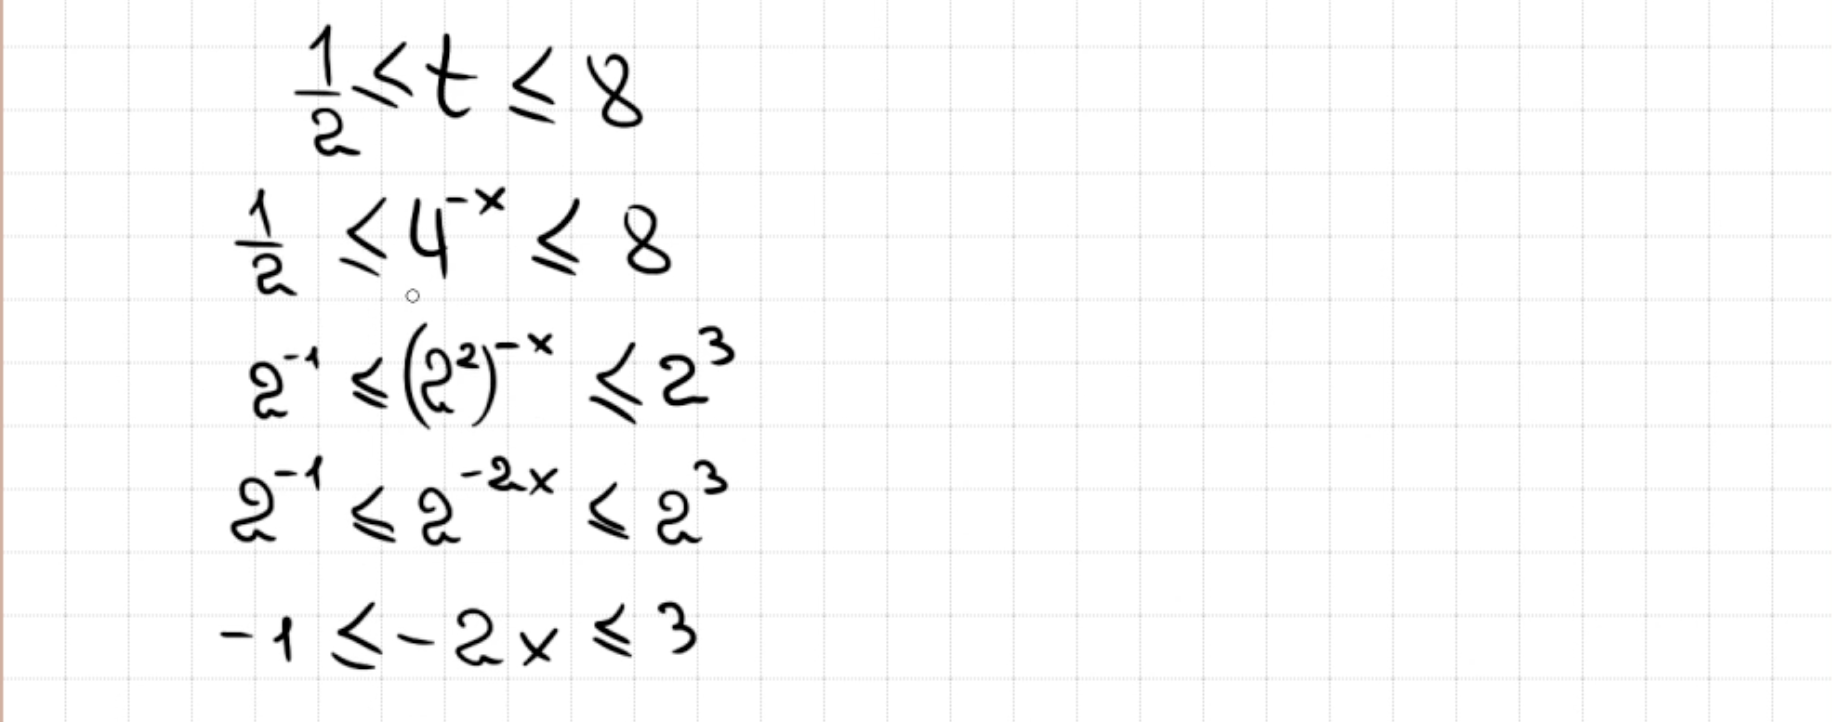 1/2 ≤ t ≤ 8
1/2 ≤ 4^{-x} ≤ 8
2^{-1} ≤ (2^2)^{-x} ≤ 2^3
2^{-1} ≤ 2^{-2x} ≤ 2^3
-1 ≤ -2x ≤ 3